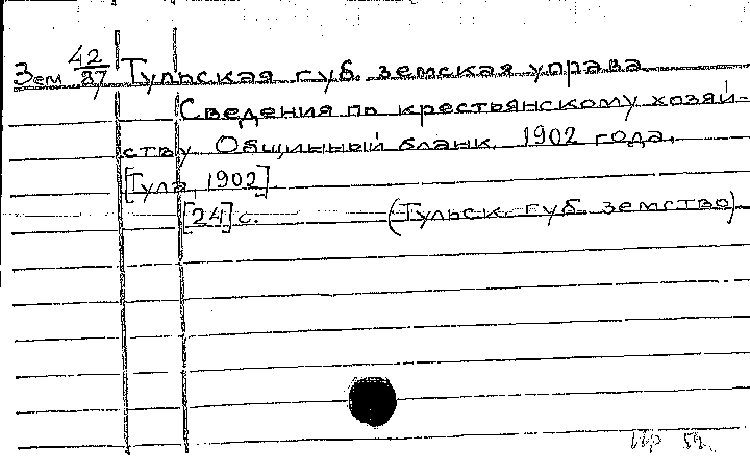 Зем 42/87 Тульская губ. земская управа
Сведения по крестьянскому хозяй-
ству Общинный бланк. 1902 года.
[Тула, 1902]
[24] с. (Тульск. губ. земство)